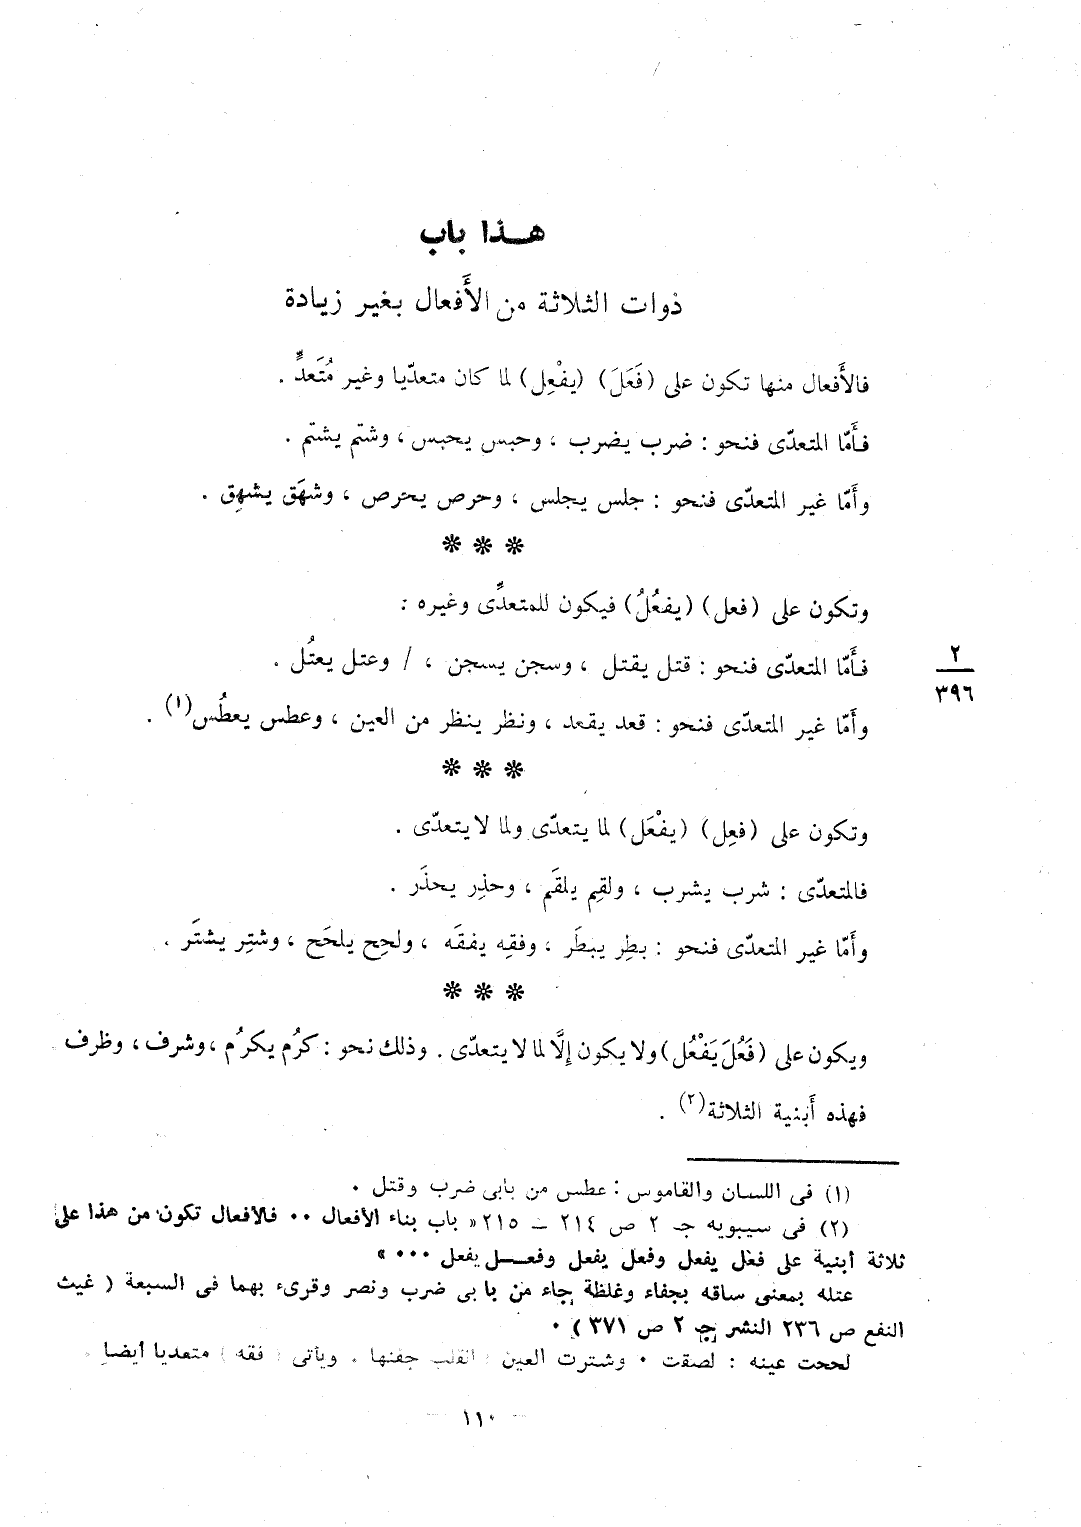 هـذا باب
ذوات الثلاثة من الأَفعال بغير زيادة
فالأَفعال منها تكون على (فَعَلَ) (يفْعِل) لما كان متعدّيا وغير مُتَعدٍّ .
فأَمّا المتعدّى فنحو : ضرب يضرب ، وحبس يحبس ، وشتم يشتم .
وأَمّا غير المتعدّى فنحو : جلس يجلس ، وحرص يحرص ، وشهَق يشهِق .
* * *
وتكون على (فعل) (يفعُلُ) فيكون للمتعدِّى وغيره :
فأَمّا المتعدّى فنحو : قتل يقتل ، وسجن يسجن ، / وعتل يعتُل .
٢
٣٩٦
وأَمّا غير المتعدّى فنحو : قعد يقعد ، ونظر ينظر من العين ، وعطس يعطُس(١) .
* * *
وتكون على (فعِل) (يفْعَل) لما يتعدّى ولما لا يتعدّى .
فالمتعدّى : شرب يشرب ، ولقِم يلقَم ، وحذِر يحذَر .
وأَمّا غير المتعدّى فنحو : بطِر يبطَر ، وفقِه يفقَه ، ولحِح يلحَح ، وشتِر يشتَر .
* * *
ويكون على (فَعُلَ يَفْعُل) ولا يكون إلَّا لما لا يتعدّى . وذلك نحو : كرُم يكرُم ، وشرف ، وظرف .
فهذه أَبنية الثلاثة(٢) .
(١) فى اللسان والقاموس : عطس من بابى ضرب وقتل .
(٢) فى سيبويه جـ ٢ ص ٢١٤ – ٢١٥ « باب بناء الأفعال .. فالأفعال تكون من هذا على
ثلاثة أبنية على فعل يفعل وفعل يفعل وفعـــل يفعل ... »
عتله بمعنى ساقه بجفاء وغلظة جاء من بابى ضرب ونصر وقرىء بهما فى السبعة ( غيث
النفع ص ٢٣٦ النشر جـ ٢ ص ٣٧١ ) .
لححت عينه : لصقت . وشترت العين : انقلب جفنها . ويأتى ( فقه ) متعديا أيضا .
– ١١٠ –